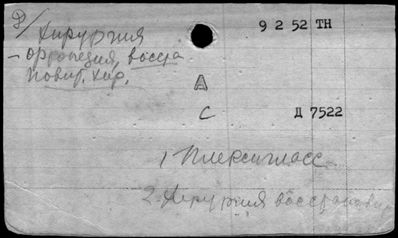 Р/
9 2 52 ТН
Хирургия
- ортопедия, восста
новит. хир.
А
С Д 7522
1 Плексигласс
2. Хирургия восстановит